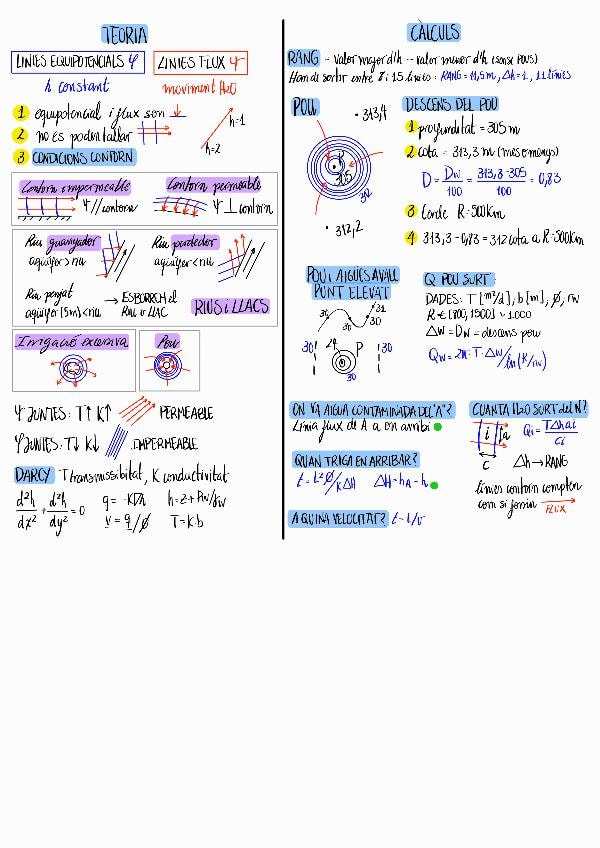 TEORIA
LINIES EQUIPOTENCIALS φ
LINIES FLUX Ψ
h constant
moviment H2O
1 equipotencial i flux són ⊥
2 no es poden tallar
h=1
h=2
3 CONDICIONS CONTORN
Contorn impermeable
Contorn permeable
Ψ // contorn
Ψ ⊥ contorn
Riu guanyador
aqüífer > riu
Riu perdedor
aqüífer < riu
Riu penjat
aqüífer (5m) < riu
→ ESBORREM el
RIU o LLAC
RIUS i LLACS
Irrigació excessiva
Pou
Ψ JUNTES: T↑ K↑
PERMEABLE
φ JUNTES: T↓ K↓
IMPERMEABLE
DARCY
T transmissibitat, K conductivitat
d²h/dx² + d²h/dy² = 0
q = -K∇h
h = z + Pw/γw
v = q/∅
T = K·b
CÀLCULS
RANG - valor major d'h -- valor menor d'h (sense POUS)
Han de sortir entre 8 i 15 línies: RANG = 11,5m, Δh=1, 11 línies
POU
313,4
305
312
312,2
DESCENS DEL POU
1 profunditat = 305 m
2 cota = 313,3 m (mes o menys)
D = Dw/100 = 313,3-305/100 = 0,83
3 Cercle R=500km
4 313,3-0,83 = 312 cota a R=500km
POU i AIGÜES AVALL
PUNT ELEVAT
31
30
30
30
29
P
30
30
Q POU SURT:
DADES: T [m²/d], b [m], ∅, rw
R ∈ [700, 1500] ~ 1000
ΔW = Dw = descens pou
Qw = 2π·T·ΔW/ln(R/rw)
ON VA AIGUA CONTAMINADA DEL "A"?
Línia flux de A a on arribi
QUAN TRIGA EN ARRIBAR?
t = L²∅/KΔH
ΔH = hA - h
A QUINA VELOCITAT? t = L/v
QUANTA H2O SURT del N?
i
a
c
Qi = TΔhai/ci
Δh → RANG
línies contorn compten
com si fossin FLUX